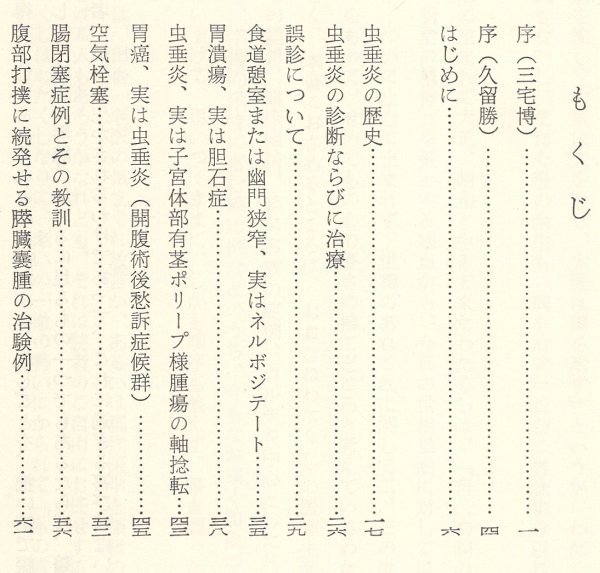 もくじ
序（三宅博）……一
序（久留勝）……四
はじめに……六
虫垂炎の歴史……一七
虫垂炎の診断ならびに治療……二六
誤診について……二九
食道憩室または幽門狭窄、実はネルボジテート……三五
胃潰瘍、実は胆石症……三八
虫垂炎、実は子宮体部有茎ポリープ様腫瘍の軸捻転……四三
胃癌、実は虫垂炎（開腹術後愁訴症候群）……四五
空気栓塞……五二
腸閉塞症例とその教訓……五六
腹部打撲に続発せる膵臓嚢腫の治験例……六一